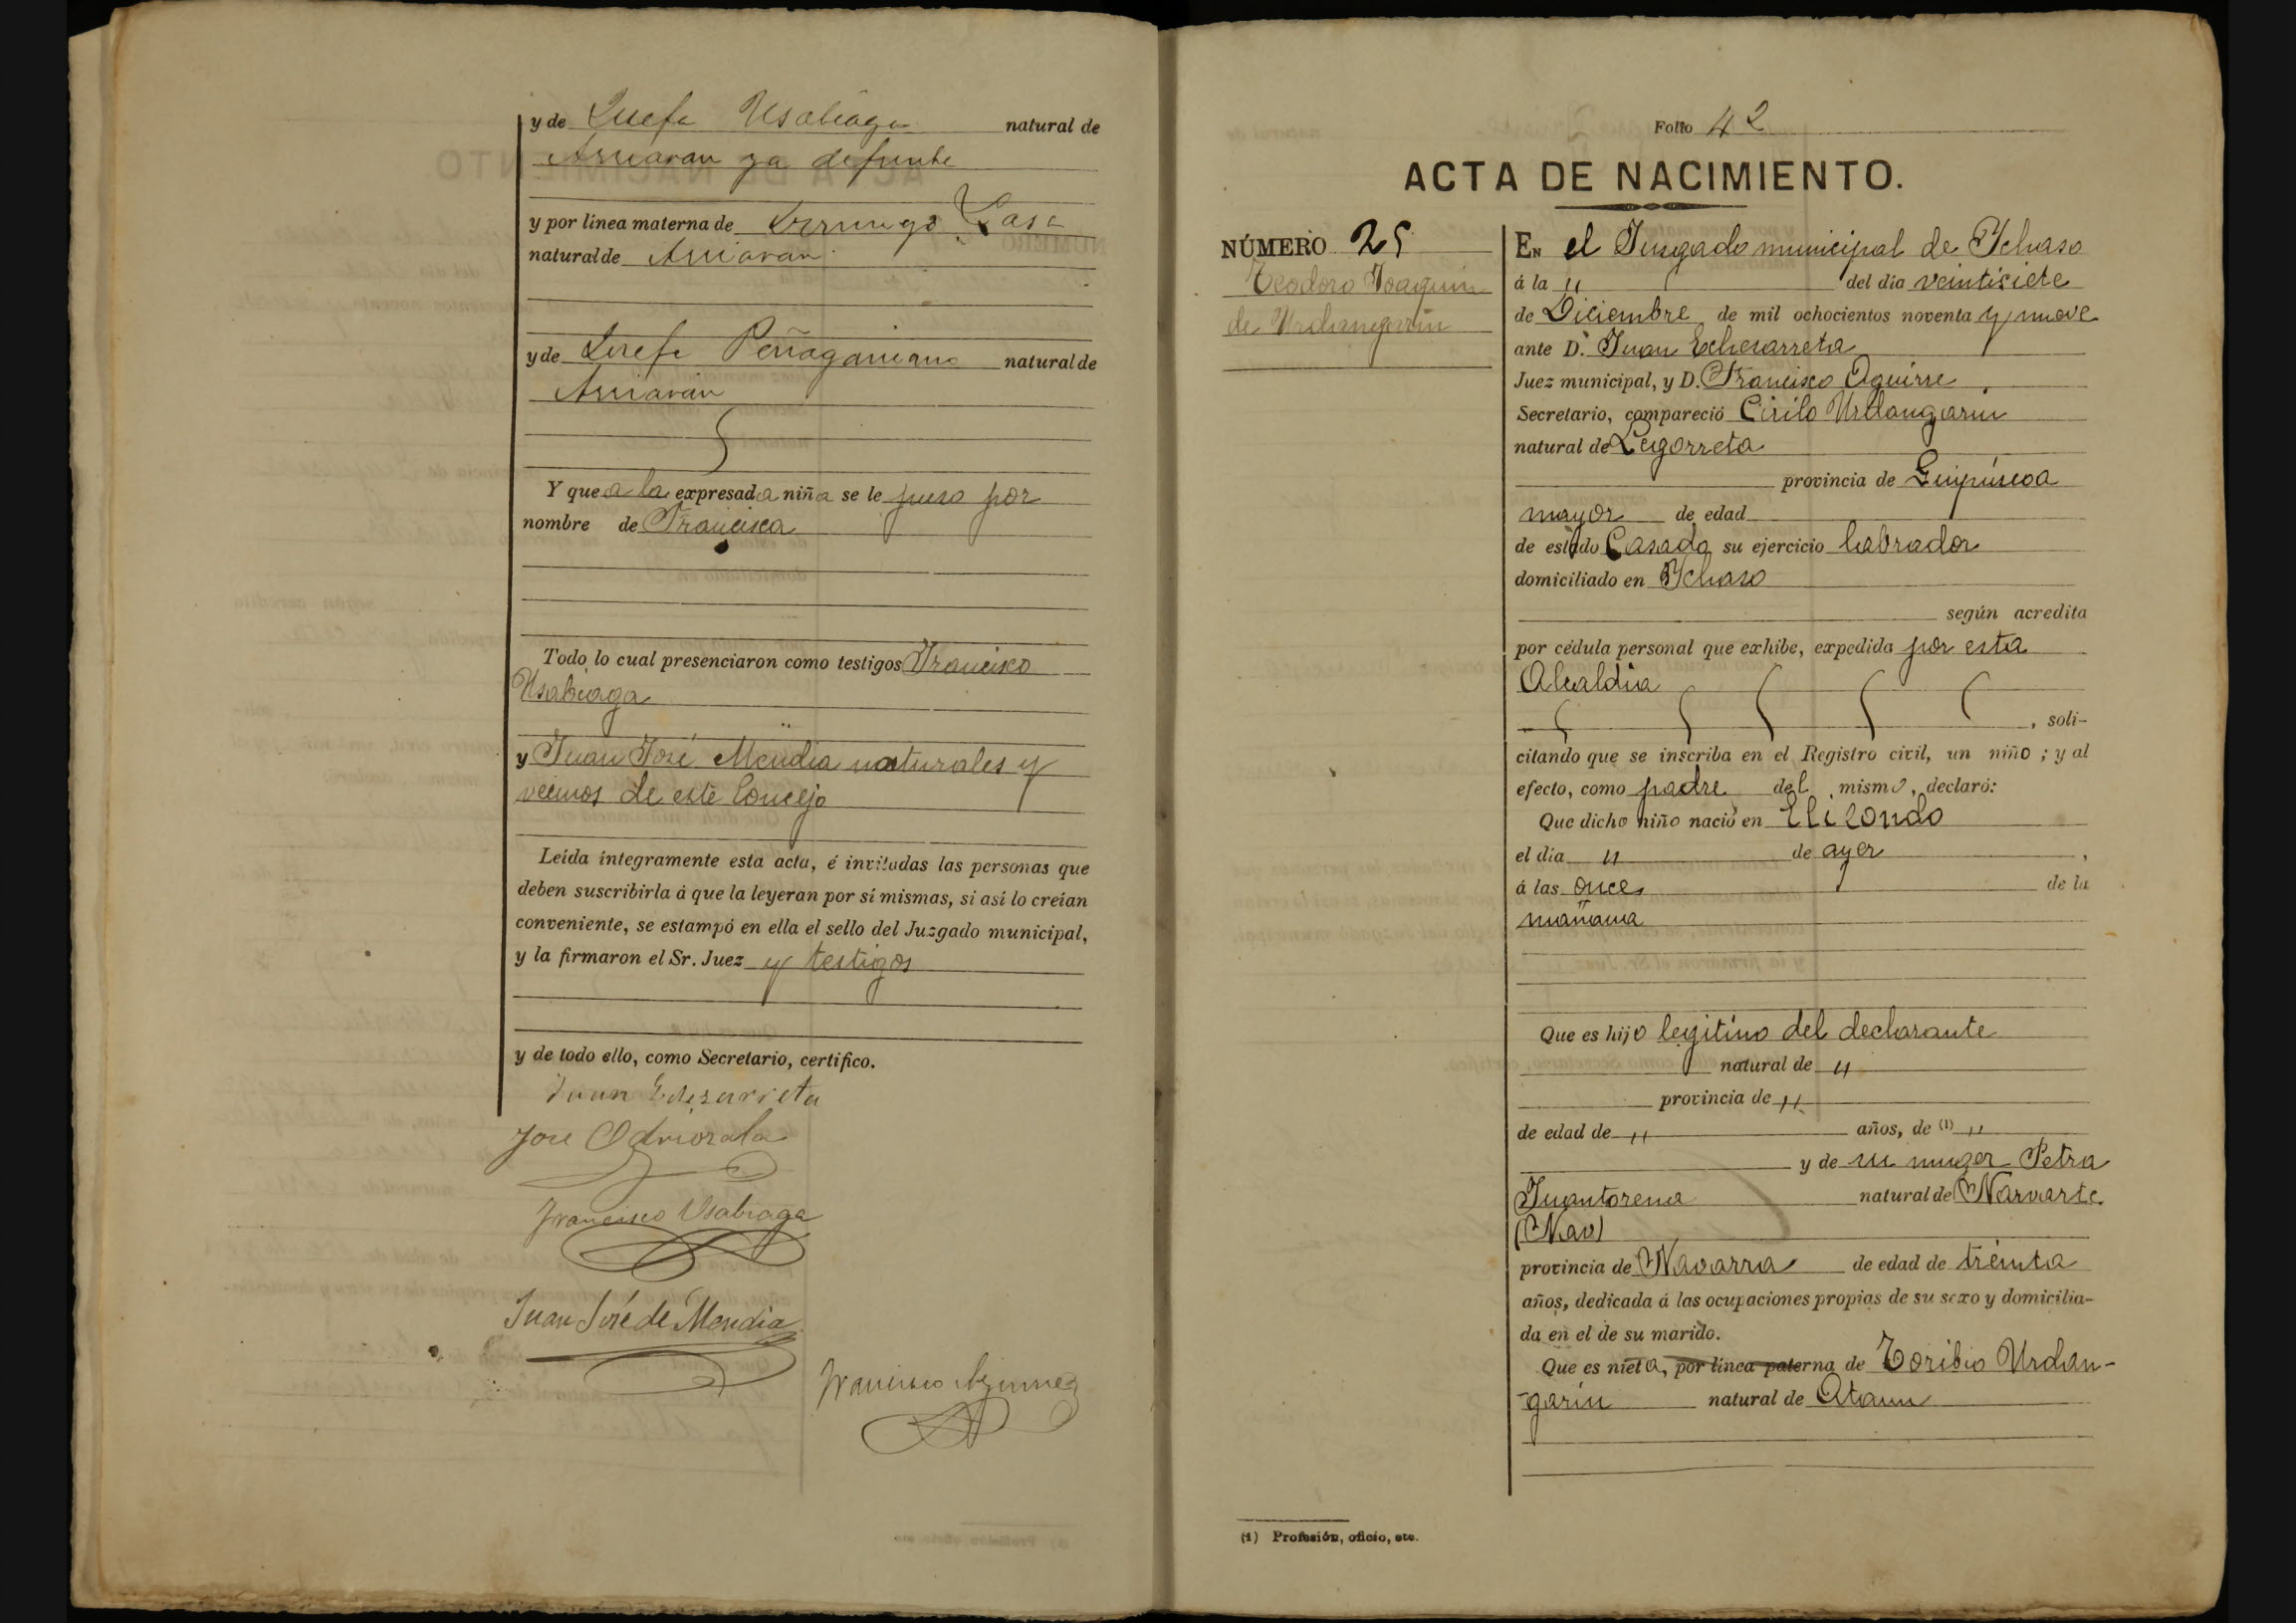 y de Josefa Usabiaga natural de
Arriarán ya difunta
y por línea materna de Domingo Lasa
natural de Arriaran
y de Josefa Peñagaricano natural de
Arriarán
Y que a la expresada niña se le puso por
nombre de Francisca
Todo lo cual presenciaron como testigos Francisco
Usabiaga
y Juan José Mendia naturales y
vecinos de este Concejo
Leída íntegramente esta acta, é invitadas las personas que
deben suscribirla á que la leyeran por sí mismas, si así lo creían
conveniente, se estampó en ella el sello del Juzgado municipal,
y la firmaron el Sr. Juez y testigos
y de todo ello, como Secretario, certifico.
Juan Echezarreta
José Odriozola
Francisco Usabiaga
Juan José de Mendia
Francisco Aguirre
Folio 42
ACTA DE NACIMIENTO.
NÚMERO 25
Teodoro Joaquin
de Urdangarin
En el Juzgado municipal de Ychaso
á la " del dia veintisiete
de Diciembre de mil ochocientos noventa y nueve
ante D. Juan Echezarreta
Juez municipal, y D. Francisco Aguirre
Secretario, compareció Cirilo Urdangarin
natural de Legorreta
provincia de Guipúscoa
mayor de edad
de estado Casado su ejercicio labrador
domiciliado en Ychaso
según acredita
por cédula personal que exhibe, expedida por esta
Alcaldia
, soli-
citando que se inscriba en el Registro civil, un niño ; y al
efecto, como padre del mismo, declaró:
Que dicho niño nació en Elizondo
el dia " de ayer ,
á las once de la
mañana
Que es hijo legitimo del declarante
natural de "
provincia de "
de edad de " años, de (1) "
y de su muger Petra
Juantorena natural de Narvarte.
(Nav)
provincia de Navarra de edad de treinta
años, dedicada á las ocupaciones propias de su sexo y domicilia-
da en el de su marido.
Que es nieta, por línea paterna de Toribio Urdan-
-garin natural de Ataun
(1) Profesión, oficio, etc.